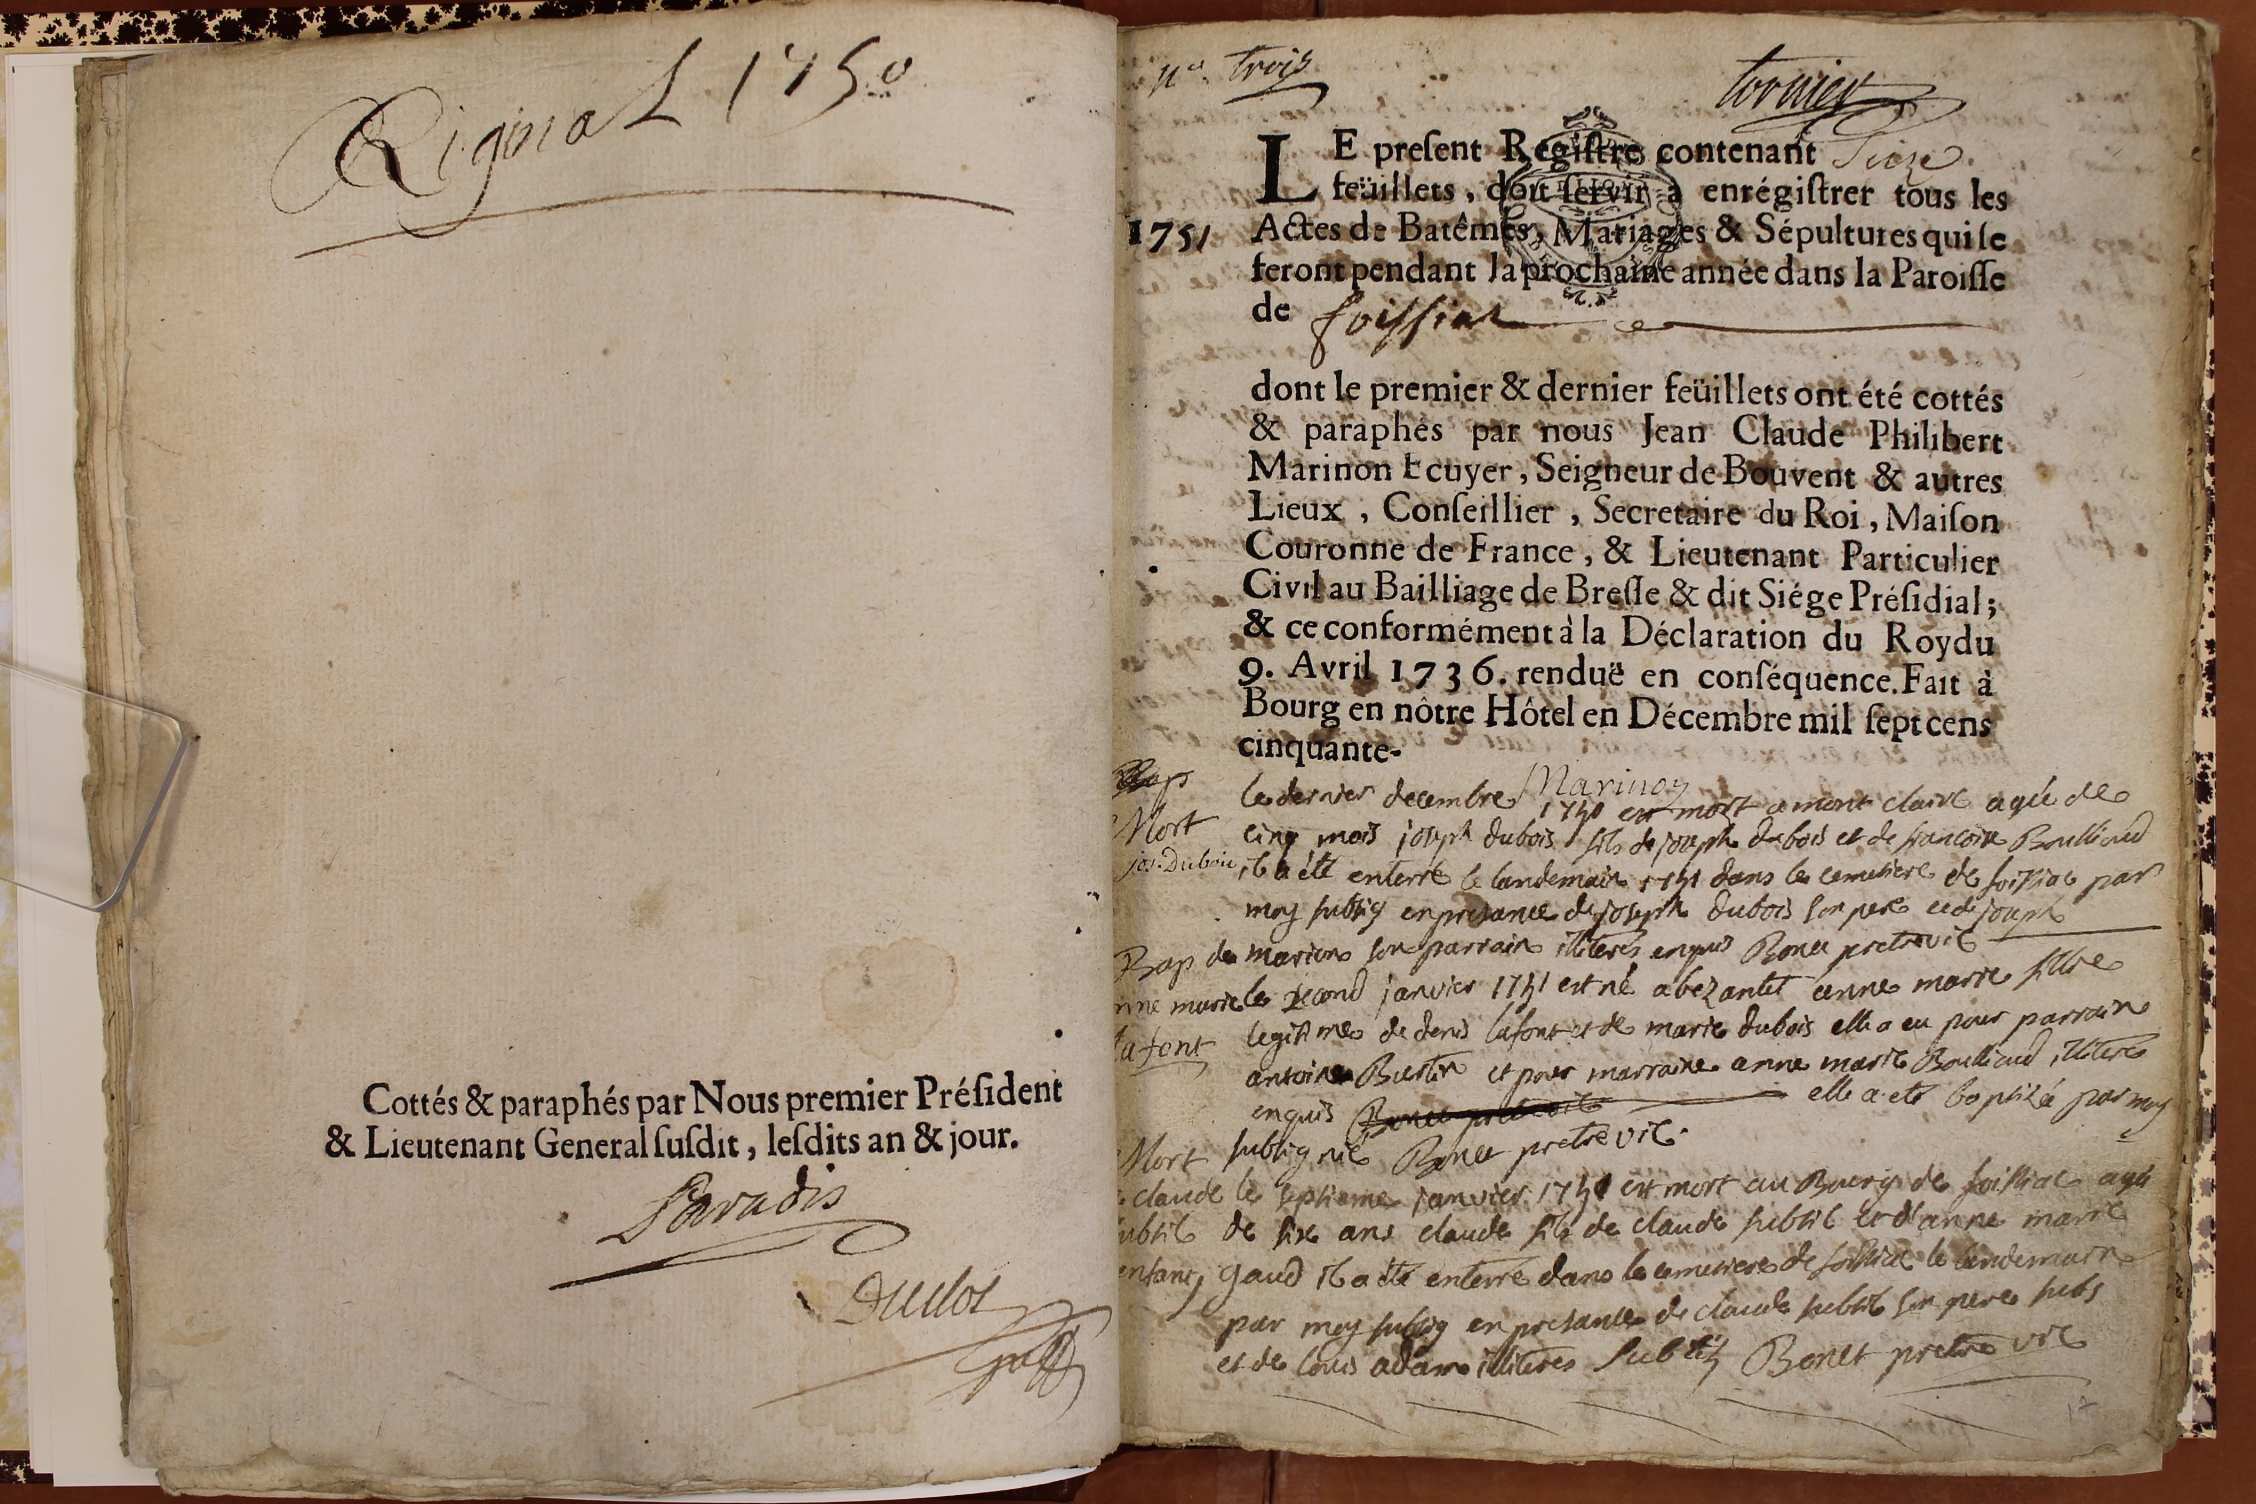 Riginal 1750
Cottés & paraphés par Nous premier Préſident
& Lieutenant General ſuſdit, leſdits an & jour.
Paradis
Duclos
N° trois
tornier
LE preſent Regiſtre contenant
feüillets, doit ſervir à enrégiſtrer tous les
1751 Actes de Batêmes, Mariages & Sépultures qui ſe
feront pendant la prochaine année dans la Paroiſſe
de foissiat
dont le premier & dernier feüillets ont été cottés
& paraphés par nous Jean Claude Philibert
Marinon Ecuyer, Seigneur de Bouvent & autres
Lieux, Conſeillier, Secretaire du Roi, Maiſon
Couronne de France, & Lieutenant Particulier
Civil au Bailliage de Breſſe & dit Siége Préſidial;
& ce conformément à la Déclaration du Roy du
9. Avril 1736. renduë en conséquence. Fait à
Bourg en nôtre Hôtel en Décembre mil ſept cens
cinquante-
Marinon
Mort
jos. Dubois
le dernier decembre 1750 est mort a mont claire agée de
cinq mois joseph dubois fils de joseph dubois et de francoise Boulliaud
il a été enterré le landemain 1751 dans le cemetiere de foissiat par
moy subsig en presance de joseph dubois son pere et de joseph
marion son parrain illiteres enquis Bonet pretre vic
Bap de
anne marie
lafont
le second janvier 1751 est né a bezantet anne marie fille
legitime de denis lafont et de marie dubois elle a eu pour parrain
antoine Burtin et pour marraine anne marie Boulliaud illiteres
enquis elle a eté baptizée par moy
subsigné Bonet pretre vic.
Mort
claude
subtil
enfant
le septieme janvier 1751 est mort au Bourg de foissiat agé
de six ans claude fils de claude subtil et d'anne marie
gaud il a été enterré dans le cemetiere de foissiat le lendemain
par moy subsig en presance de claude subtil son pere subs
et de louis adam illiteres Subtil Bonet pretre vic